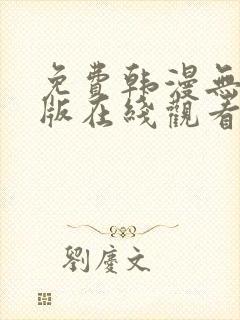 免費韩漫無
版在綫觀看
劉慶文